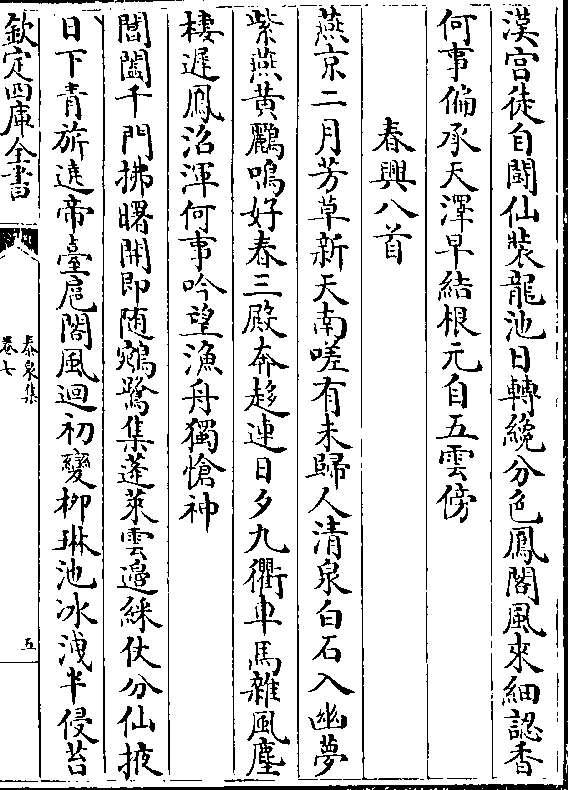 漢宫徒自鬪仙裝龍池日轉纔分色鳳閣風來細認香
何事偏承天澤早結根元自五雲傍
春興八首
燕京二月芳草新天南嗟有未歸人清泉白石入幽夢
紫燕黄鸝鳴好春三殿奔趍連日夕九衢車馬雜風塵
棲遲鳳沼渾何事吟望漁舟獨愴神
閶闔千門拂曙開即随鵷鷺集蓬萊雲邉綵仗分仙掖
日下青旂逺帝臺扈閣風迴初變柳琳池冰洩半侵苔
欽定四庫全書
泰泉集
卷七
五